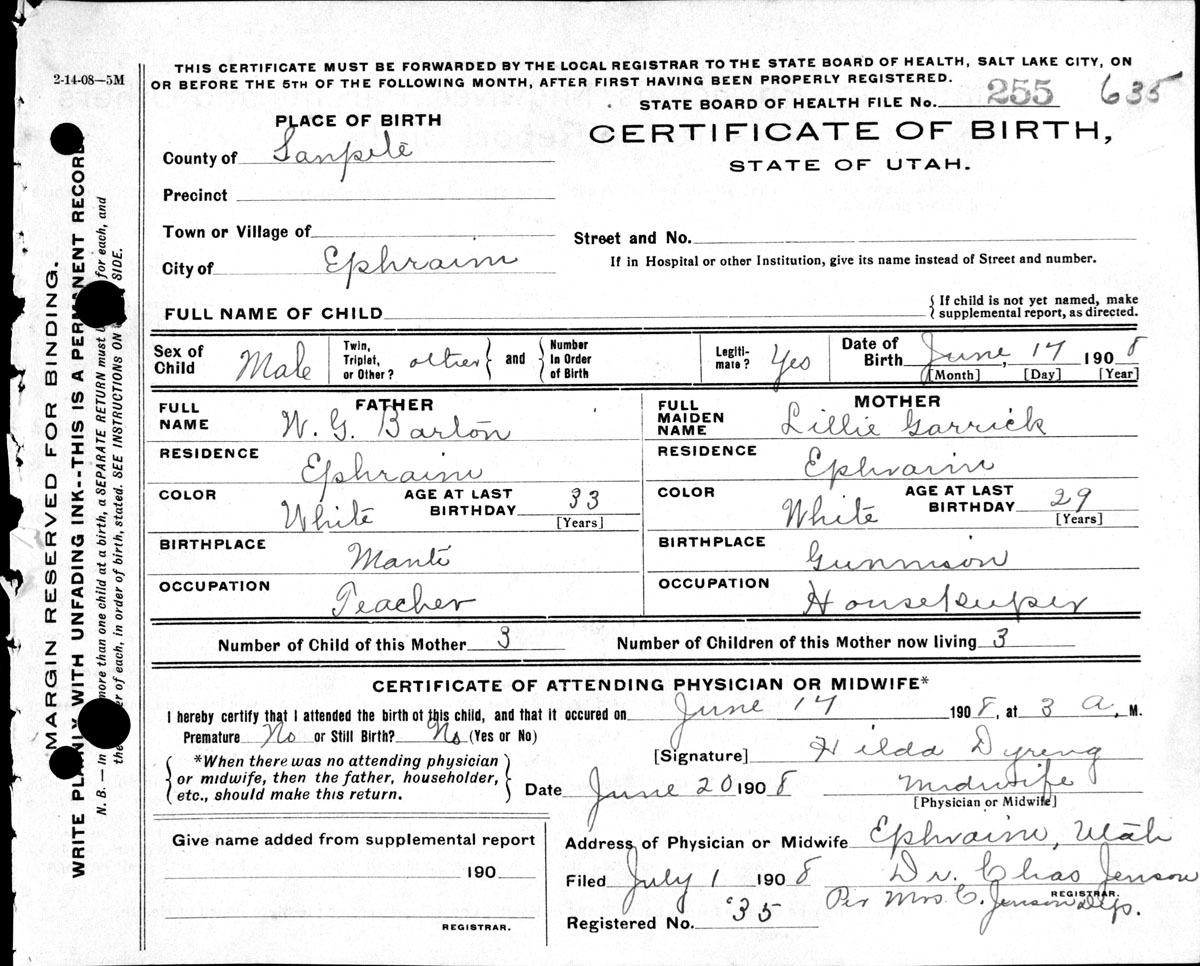 2-14-08—5M
THIS CERTIFICATE MUST BE FORWARDED BY THE LOCAL REGISTRAR TO THE STATE BOARD OF HEALTH, SALT LAKE CITY, ON
OR BEFORE THE 5TH OF THE FOLLOWING MONTH, AFTER FIRST HAVING BEEN PROPERLY REGISTERED.
STATE BOARD OF HEALTH FILE No. 255 635
PLACE OF BIRTH
CERTIFICATE OF BIRTH,
STATE OF UTAH.
County of Sanpete
Precinct
Town or Village of
Street and No.
City of Ephraim
If in Hospital or other Institution, give its name instead of Street and number.
FULL NAME OF CHILD {If child is not yet named, make
supplemental report, as directed.
Sex of Child Male Twin, Triplet, or Other? other and Number In Order of Birth Legiti-mate? Yes Date of Birth June, 17 1908
[Month] [Day] [Year]
FATHER
FULL NAME W. G. Barton
RESIDENCE Ephraim
COLOR White AGE AT LAST BIRTHDAY 33
[Years]
BIRTHPLACE Manti
OCCUPATION Teacher
MOTHER
FULL MAIDEN NAME Lillie Garrick
RESIDENCE Ephraim
COLOR White AGE AT LAST BIRTHDAY 29
[Years]
BIRTHPLACE Gunnison
OCCUPATION Housekeeper
Number of Child of this Mother 3 Number of Children of this Mother now living 3
CERTIFICATE OF ATTENDING PHYSICIAN OR MIDWIFE*
I hereby certify that I attended the birth of this child, and that it occured on June 17 1908, at 3 a, M.
Premature No or Still Birth? No (Yes or No)
[Signature] Hilda Dyreng
*When there was no attending physician
or midwife, then the father, householder,
etc., should make this return.
Date June 20 1908 Midwife
[Physician or Midwife]
Give name added from supplemental report
190
REGISTRAR.
Address of Physician or Midwife Ephraim, Utah
Filed July 1 1908 Dr. Chas Jenson
REGISTRAR.
Per Mrs. C. Jenson Dep.
Registered No. 35
MARGIN RESERVED FOR BINDING.
WRITE PLAINLY WITH UNFADING INK--THIS IS A PERMANENT RECORD
N. B.—In more than one child at a birth, a SEPARATE RETURN must for each, and
the of each, in order of birth, stated. SEE INSTRUCTIONS ON SIDE.